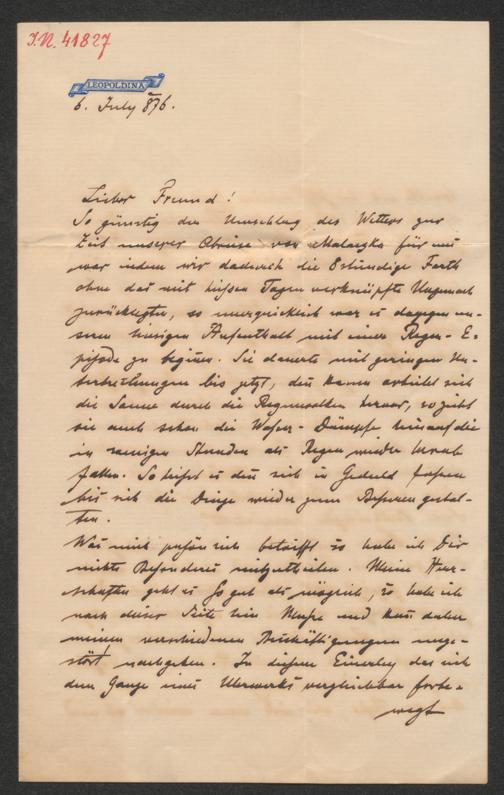 J.N. 41827
LEOPOLDINA
6. July 876.
Lieber Freund!
So günstig der Umschlag des Wetters zur
Zeit unserer Abreise von Malaczka für uns
war indem wir dadurch die 8stündige Farth
ohne das mit heißen Tagen verknüpfte Ungemach
zurücklegten, so unerquicklich war es dagegen un-
seren hiesigen Aufenthalt mit einer Regen-E-
pisode zu beginnen. Sie dauerte mit geringen Un-
terbrechungen bis jetzt, den kaum arbeitet sich
die Sonne durch die Regenwolken hervor, so zieht
sie auch schon die Wasser-Dämpfe hinauf die
in wenigen Stunden als Regen wieder herab
fallen. So heißt es den sich in Geduld fassen
bis sich die Dinge wieder zum Besseren gestal-
ten.
Was mich persönlich betrifft so habe ich Dir
nichts Besonderes mitzutheilen. Meine Herr-
schaften geht es so gut als möglich, so habe ich
nach dieser Seite hin Muße und kan daher
meinen verschiedenen Beschäftigungen unge-
stört nachgehen. In diesem Einerley das sich
dem Gange eines Uhrwerks vergleichbar fortbe-
wegt